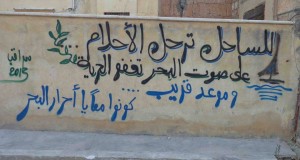 للساحل ترحل الأحلام
على صوت البحر تغفو الحرية
وموعد قريب ....
كونوا معاً يا أحرار البحر
سراقب
2015